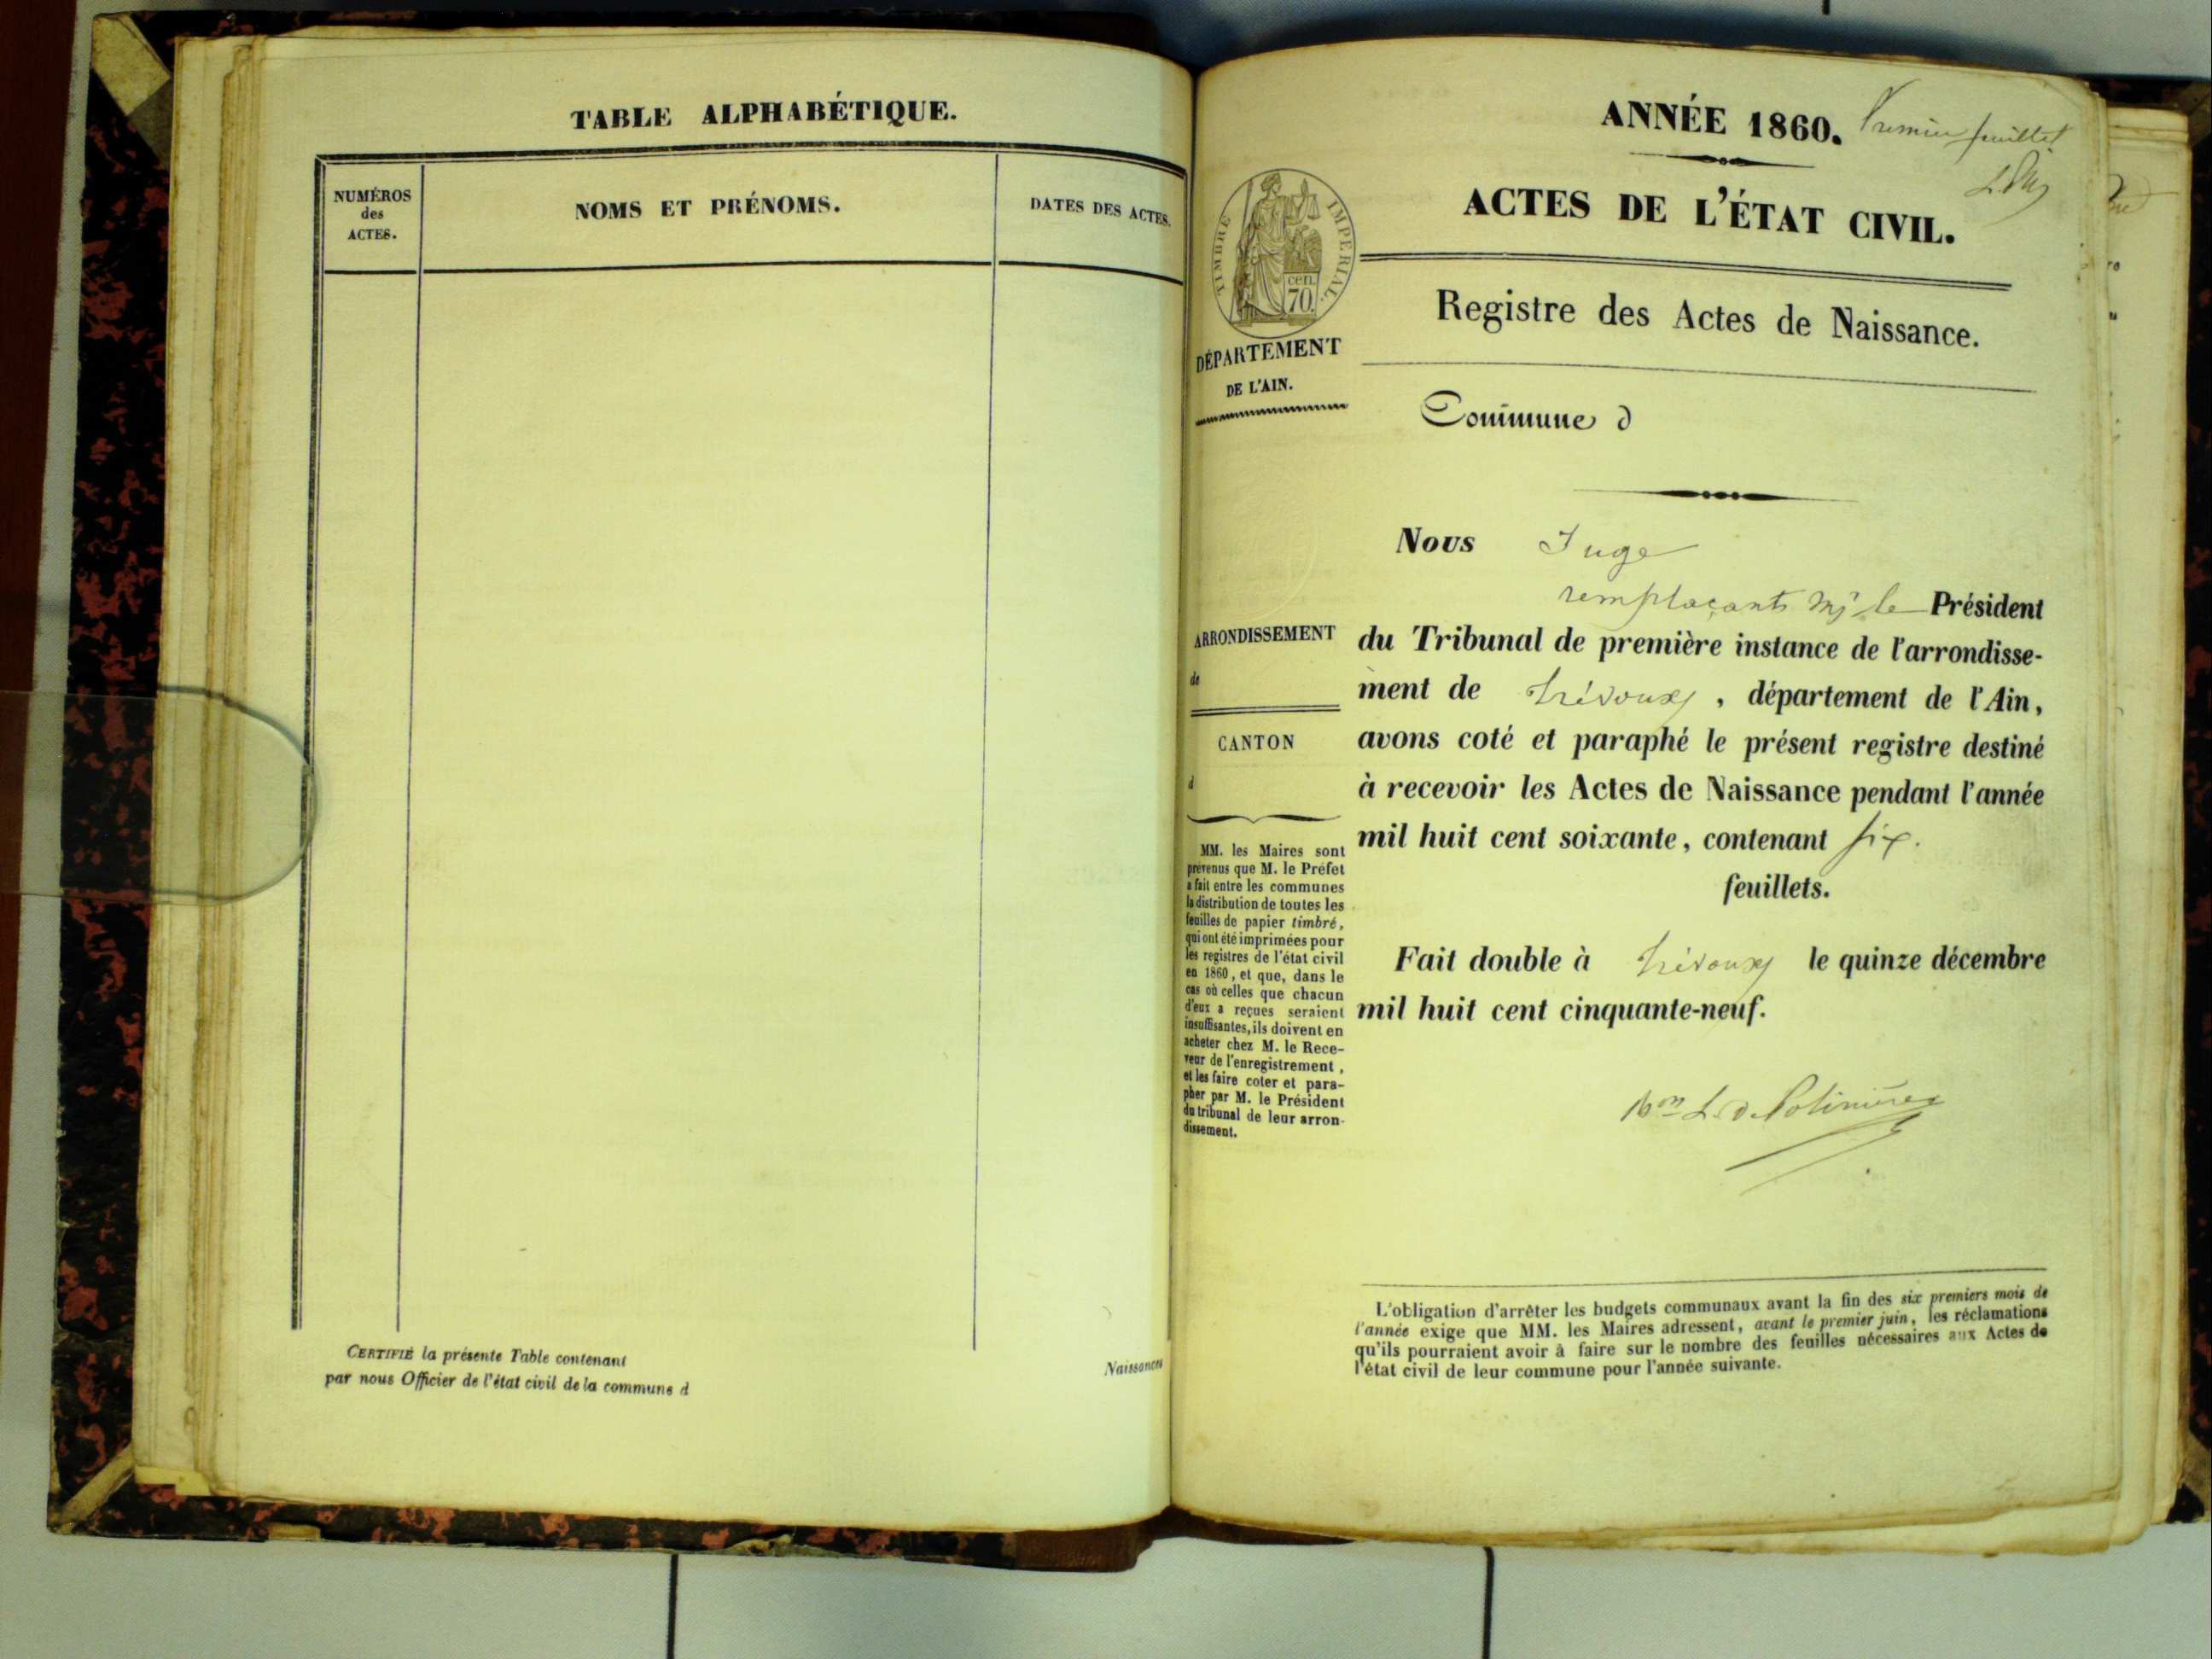 TABLE ALPHABÉTIQUE.
NUMÉROS
des
ACTES.
NOMS ET PRÉNOMS.
DATES DES ACTES.
CERTIFIÉ la présente Table contenant
par nous Officier de l'état civil de la commune d
Naissances
ANNÉE 1860.
Premier feuillet
ACTES DE L'ÉTAT CIVIL.
TIMBRE IMPERIAL.
cen.
70
Registre des Actes de Naissance.
DÉPARTEMENT
DE L'AIN.
Commune d
Nous Juge
remplaçant Mr le Président
ARRONDISSEMENT
de
CANTON
d
du Tribunal de première instance de l'arrondisse-
ment de Trévoux, département de l'Ain,
avons coté et paraphé le présent registre destiné
à recevoir les Actes de Naissance pendant l'année
mil huit cent soixante, contenant six.
feuillets.
Fait double à Trévoux le quinze décembre
mil huit cent cinquante-neuf.
MM. les Maires sont
prévenus que M. le Préfet
a fait entre les communes
la distribution de toutes les
feuilles de papier timbré,
qui ont été imprimées pour
les registres de l'état civil
en 1860, et que, dans le
cas où celles que chacun
d'eux a reçues seraient
insuffisantes, ils doivent en
acheter chez M. le Rece-
veur de l'enregistrement,
et les faire coter et para-
pher par M. le Président
du tribunal de leur arron-
dissement.
L. de Polinière
L'obligation d'arrêter les budgets communaux avant la fin des six premiers mois de
l'année exige que MM. les Maires adressent, avant le premier juin, les réclamations
qu'ils pourraient avoir à faire sur le nombre des feuilles nécessaires aux Actes de
l'état civil de leur commune pour l'année suivante.